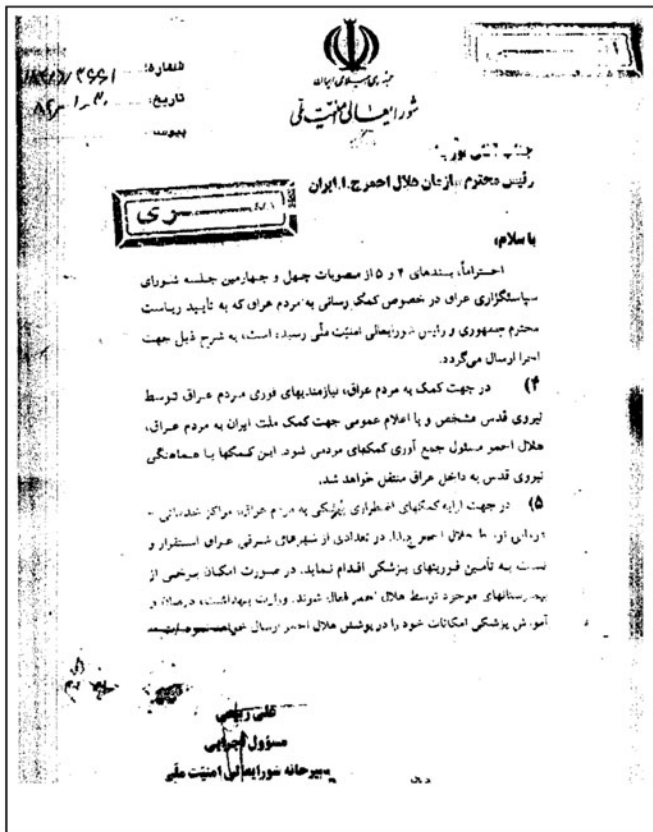 شماره:
تاریخ:
پیوست
جمهوری اسلامی ایران
شورایعالی امنیت ملی
جناب آقای نوربالا
رئیس محترم سازمان هلال احمر ج.ا.ایران
سری
با سلام،
احتراماً، بندهای ۴ و ۵ از مصوبات چهل و چهارمین جلسه شورای
سیاستگزاری عراق در خصوص کمک رسانی به مردم عراق که به تأیید ریاست
محترم جمهوری و رئیس شورایعالی امنیت ملّی رسیده است، به شرح ذیل جهت
اجرا ارسال می‌گردد.
۴) در جهت کمک به مردم عراق، نیازمندیهای فوری مردم عراق توسط
نیروی قدس مشخص و با اعلام عمومی جهت کمک ملت ایران به مردم عراق،
هلال احمر مسئول جمع آوری کمکهای مردمی شود. این کمکها با هماهنگی
نیروی قدس به داخل عراق منتقل خواهد شد.
۵) در جهت ارایه کمکهای اضطراری پزشکی به مردم عراق، مراکز خدماتی -
درمانی توسط هلال احمر ج.ا.ا. در تعدادی از شهرهای شرقی عراق استقرار و
نسبت به تأمین فوریتهای پزشکی اقدام نماید. در صورت امکان برخی از
بیمارستانهای موجود توسط هلال احمر فعال شوند. وزارت بهداشت، درمان و
آموزش پزشکی امکانات خود را در پوشش هلال احمر ارسال خواهد نمود
علی ربیعی
مسؤول اجرایی
دبیرخانه شورایعالی امنیت ملّی